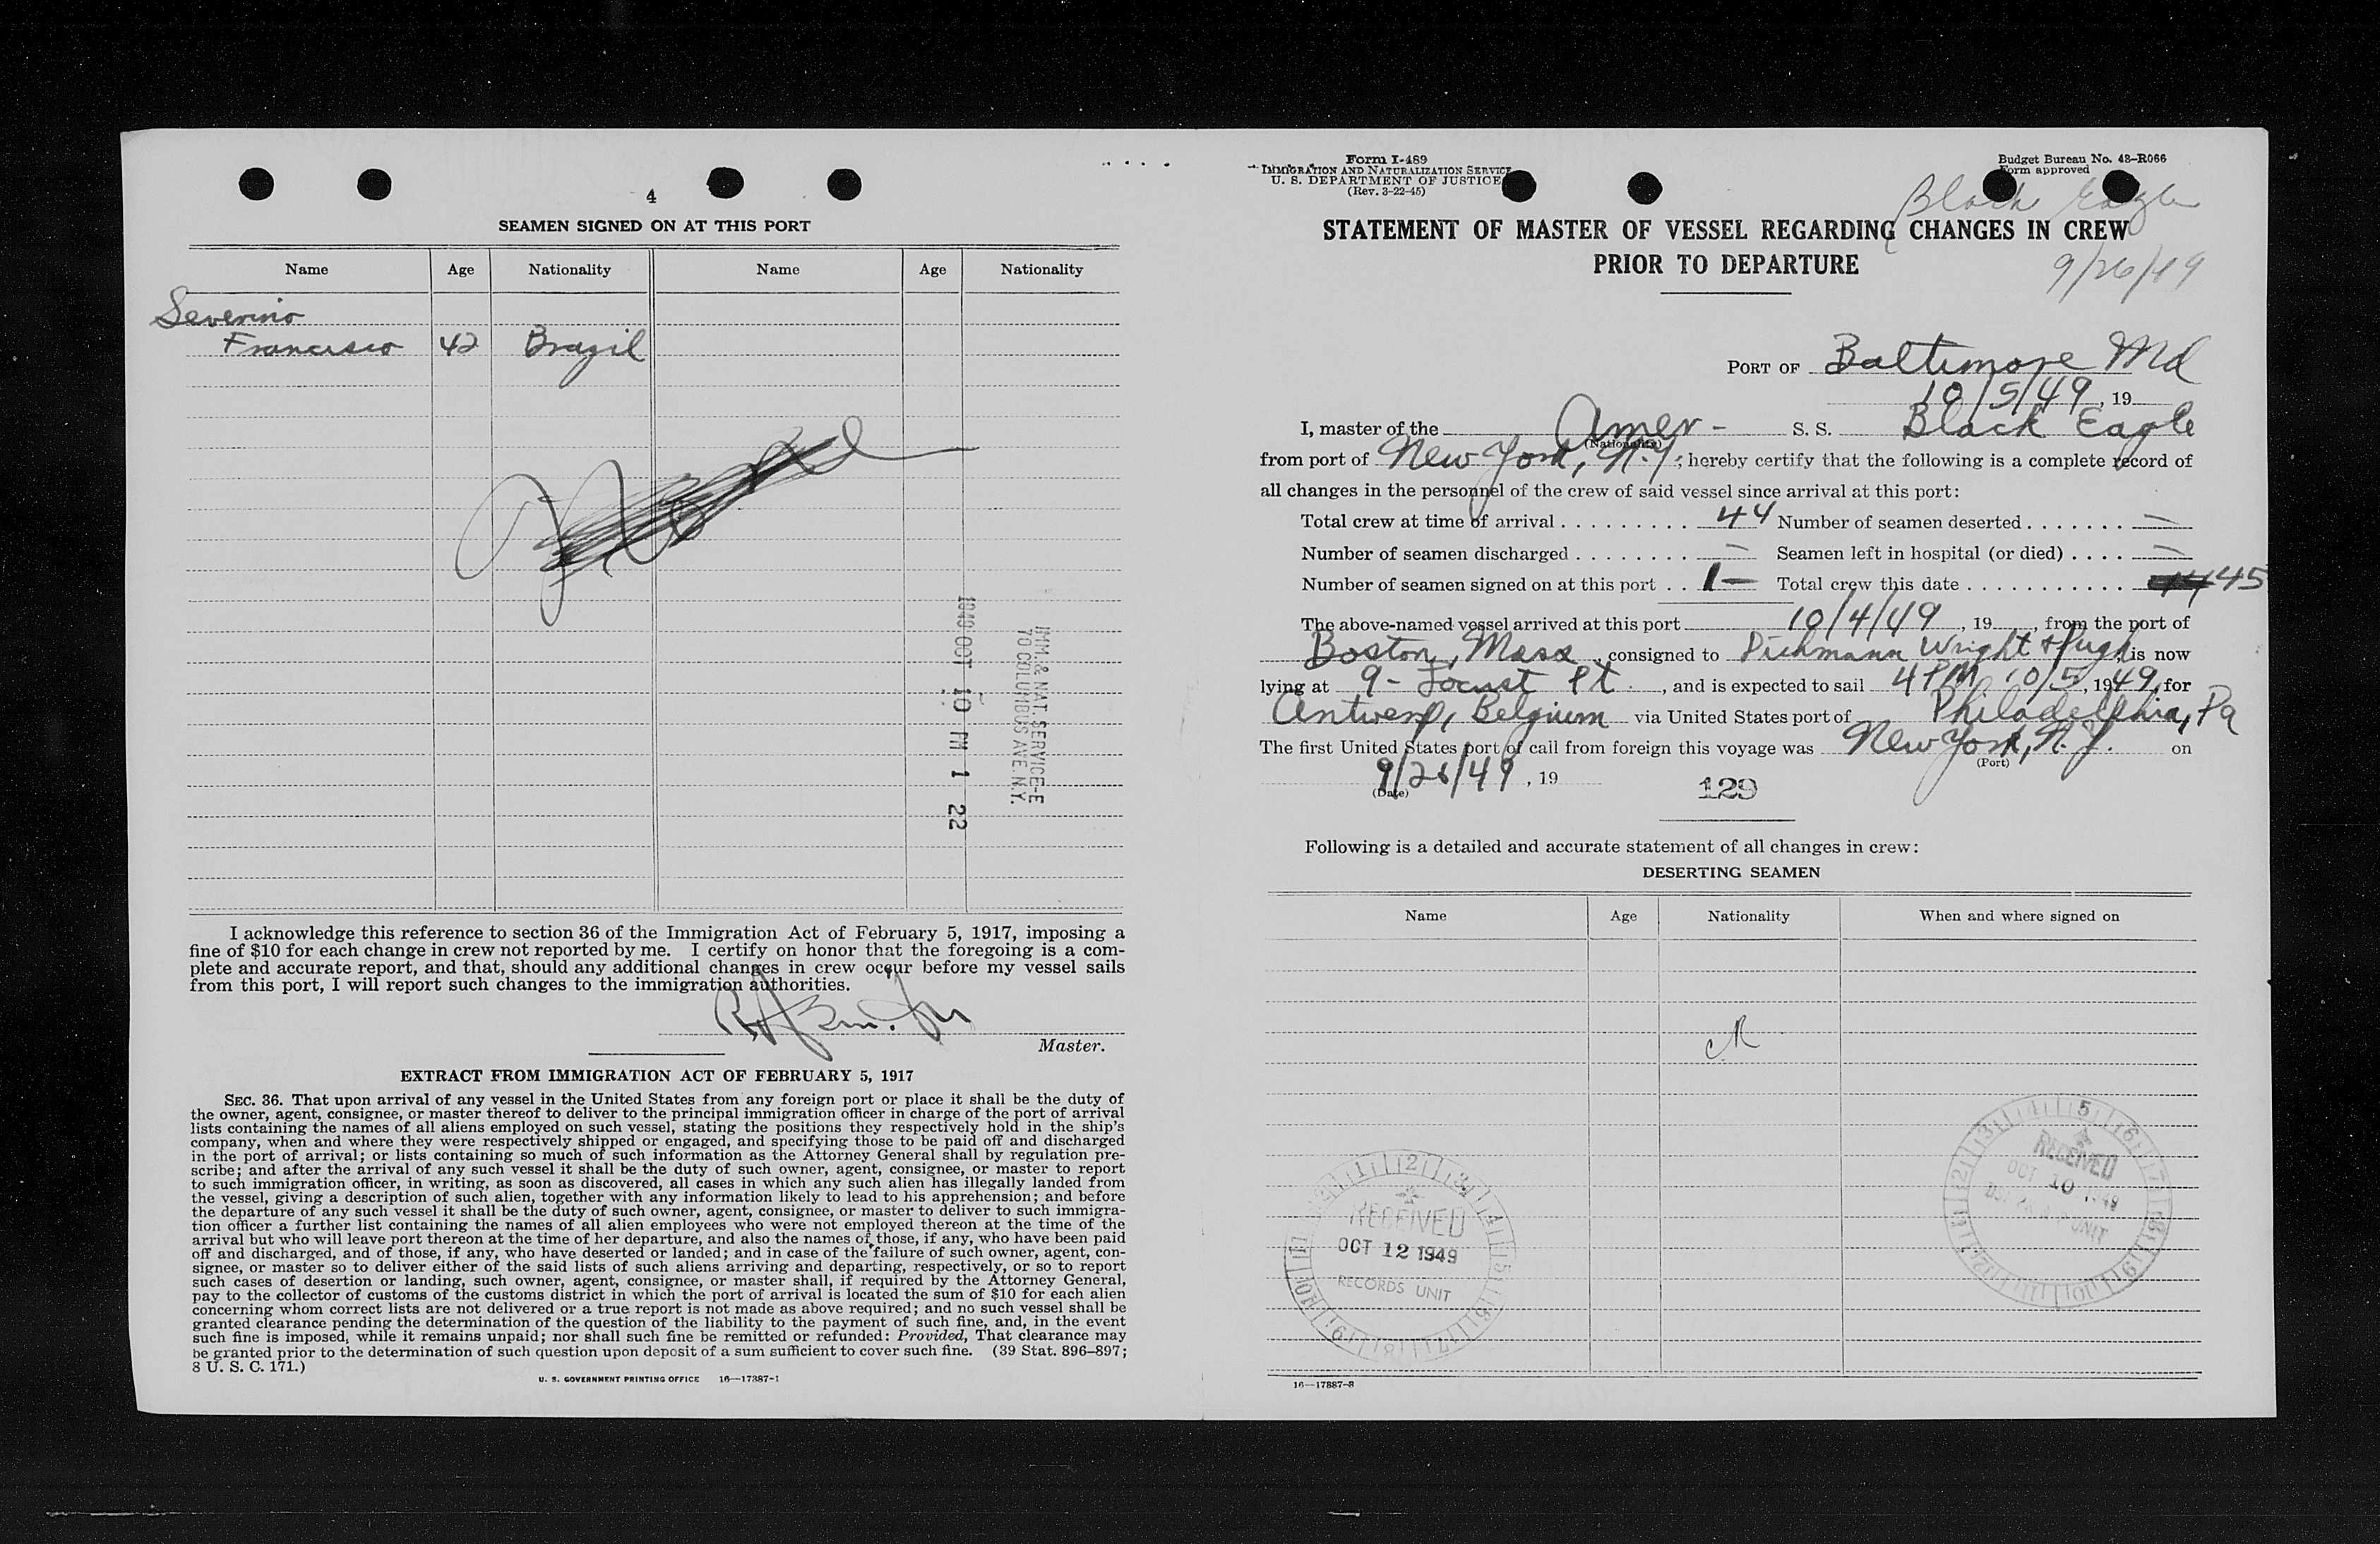 4
SEAMEN SIGNED ON AT THIS PORT
Name Age Nationality Name Age Nationality
Severino
Francisco 42 Brazil
1949 OCT 10 PM 1 22
IMM. & NAT. SERVICE-E
70 COLUMBUS AVE N.Y.
I acknowledge this reference to section 36 of the Immigration Act of February 5, 1917, imposing a
fine of $10 for each change in crew not reported by me. I certify on honor that the foregoing is a com-
plete and accurate report, and that, should any additional changes in crew occur before my vessel sails
from this port, I will report such changes to the immigration authorities.
Master.
EXTRACT FROM IMMIGRATION ACT OF FEBRUARY 5, 1917
SEC. 36. That upon arrival of any vessel in the United States from any foreign port or place it shall be the duty of
the owner, agent, consignee, or master thereof to deliver to the principal immigration officer in charge of the port of arrival
lists containing the names of all aliens employed on such vessel, stating the positions they respectively hold in the ship's
company, when and where they were respectively shipped or engaged, and specifying those to be paid off and discharged
in the port of arrival; or lists containing so much of such information as the Attorney General shall by regulation pre-
scribe; and after the arrival of any such vessel it shall be the duty of such owner, agent, consignee, or master to report
to such immigration officer, in writing, as soon as discovered, all cases in which any such alien has illegally landed from
the vessel, giving a description of such alien, together with any information likely to lead to his apprehension; and before
the departure of any such vessel it shall be the duty of such owner, agent, consignee, or master to deliver to such immigra-
tion officer a further list containing the names of all alien employees who were not employed thereon at the time of the
arrival but who will leave port thereon at the time of her departure, and also the names of those, if any, who have been paid
off and discharged, and of those, if any, who have deserted or landed; and in case of the failure of such owner, agent, con-
signee, or master so to deliver either of the said lists of such aliens arriving and departing, respectively, or so to report
such cases of desertion or landing, such owner, agent, consignee, or master shall, if required by the Attorney General,
pay to the collector of customs of the customs district in which the port of arrival is located the sum of $10 for each alien
concerning whom correct lists are not delivered or a true report is not made as above required; and no such vessel shall be
granted clearance pending the determination of the question of the liability to the payment of such fine, and, in the event
such fine is imposed, while it remains unpaid; nor shall such fine be remitted or refunded: Provided, That clearance may
be granted prior to the determination of such question upon deposit of a sum sufficient to cover such fine. (39 Stat. 896–897;
8 U. S. C. 171.)
U. S. GOVERNMENT PRINTING OFFICE 16—17887-1
Form I-489
IMMIGRATION AND NATURALIZATION SERVICE
U. S. DEPARTMENT OF JUSTICE
(Rev. 3-22-45)
Budget Bureau No. 43-R066
Form approved
Black Eagle
STATEMENT OF MASTER OF VESSEL REGARDING CHANGES IN CREW
PRIOR TO DEPARTURE
9/26/49
PORT OF Baltimore Md
10/5/49, 19
I, master of the Amer- S. S. Black Eagle
(Nationality)
from port of New York, N.Y.; hereby certify that the following is a complete record of
all changes in the personnel of the crew of said vessel since arrival at this port:
Total crew at time of arrival 44 Number of seamen deserted —
Number of seamen discharged — Seamen left in hospital (or died) —
Number of seamen signed on at this port 1— Total crew this date 44 45
The above-named vessel arrived at this port 10/4/49, 19, from the port of
Boston, Mass, consigned to Dichmann Wright & Pugh, is now
lying at 9- Locust Pt., and is expected to sail 4 PM 10/5, 1949, for
Antwerp, Belgium via United States port of Philadelphia, Pa
The first United States port of call from foreign this voyage was New York, N.Y. on
(Port)
9/26/49, 19
(Date)
129
Following is a detailed and accurate statement of all changes in crew:
DESERTING SEAMEN
Name Age Nationality When and where signed on
RECEIVED
OCT 10 1949
UNIT
RECEIVED
OCT 12 1949
RECORDS UNIT
16—17887-3